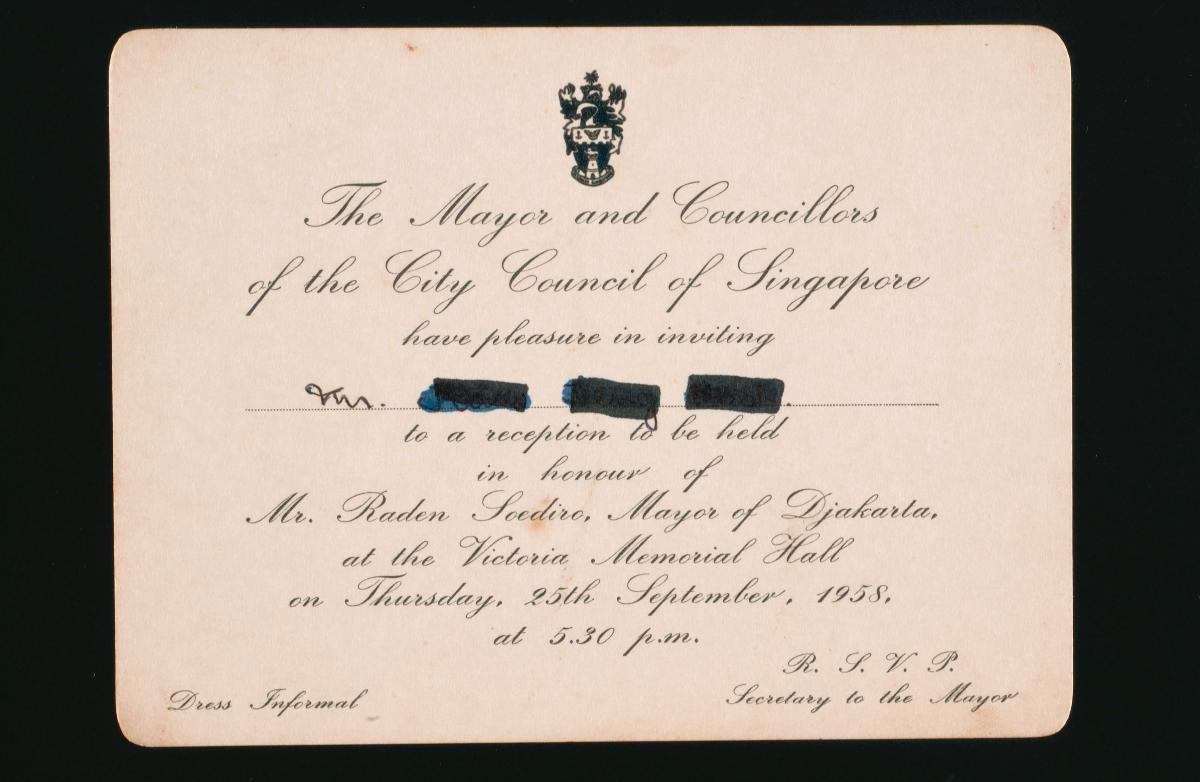 The Mayor and Councillors
of the City Council of Singapore
have pleasure in inviting
Mr.
to a reception to be held
in honour of
Mr. Raden Soediro, Mayor of Djakarta,
at the Victoria Memorial Hall
on Thursday, 25th September, 1958,
at 5.30 p.m.
R. S. V. P.
Dress Informal
Secretary to the Mayor